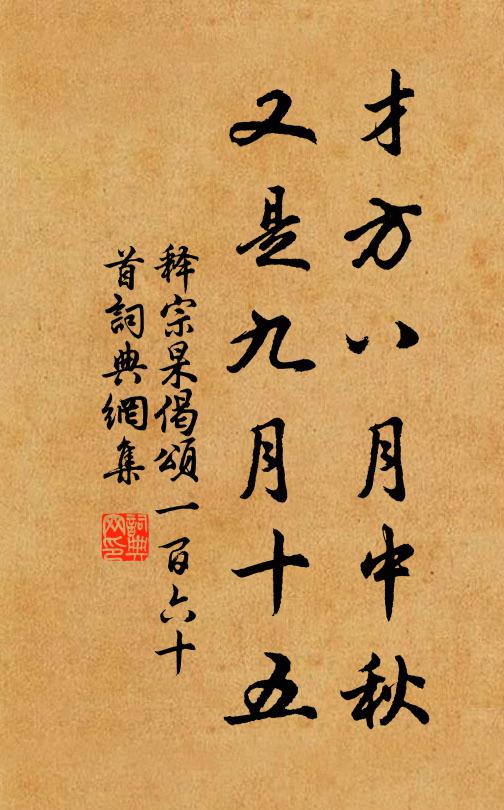 才方八月中秋
又是九月十五
释宗杲偈頌一百六十
首詞典網集
詞典
网印